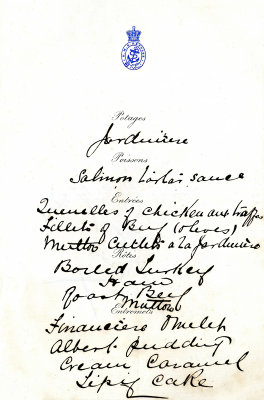 Potages
Jardiniere
Poissons
Salmon Tartar sauce
Entrées
Quenelles of Chicken aux truffes
Fillets of Beef (olives)
Mutton Cutlets a la Jardiniere
Rôtes
Boiled Turkey
Ham
Roast Beef
Mutton
Entremets
Financiere Omelet
Albert pudding
Cream Caramel
Tipsy Cake